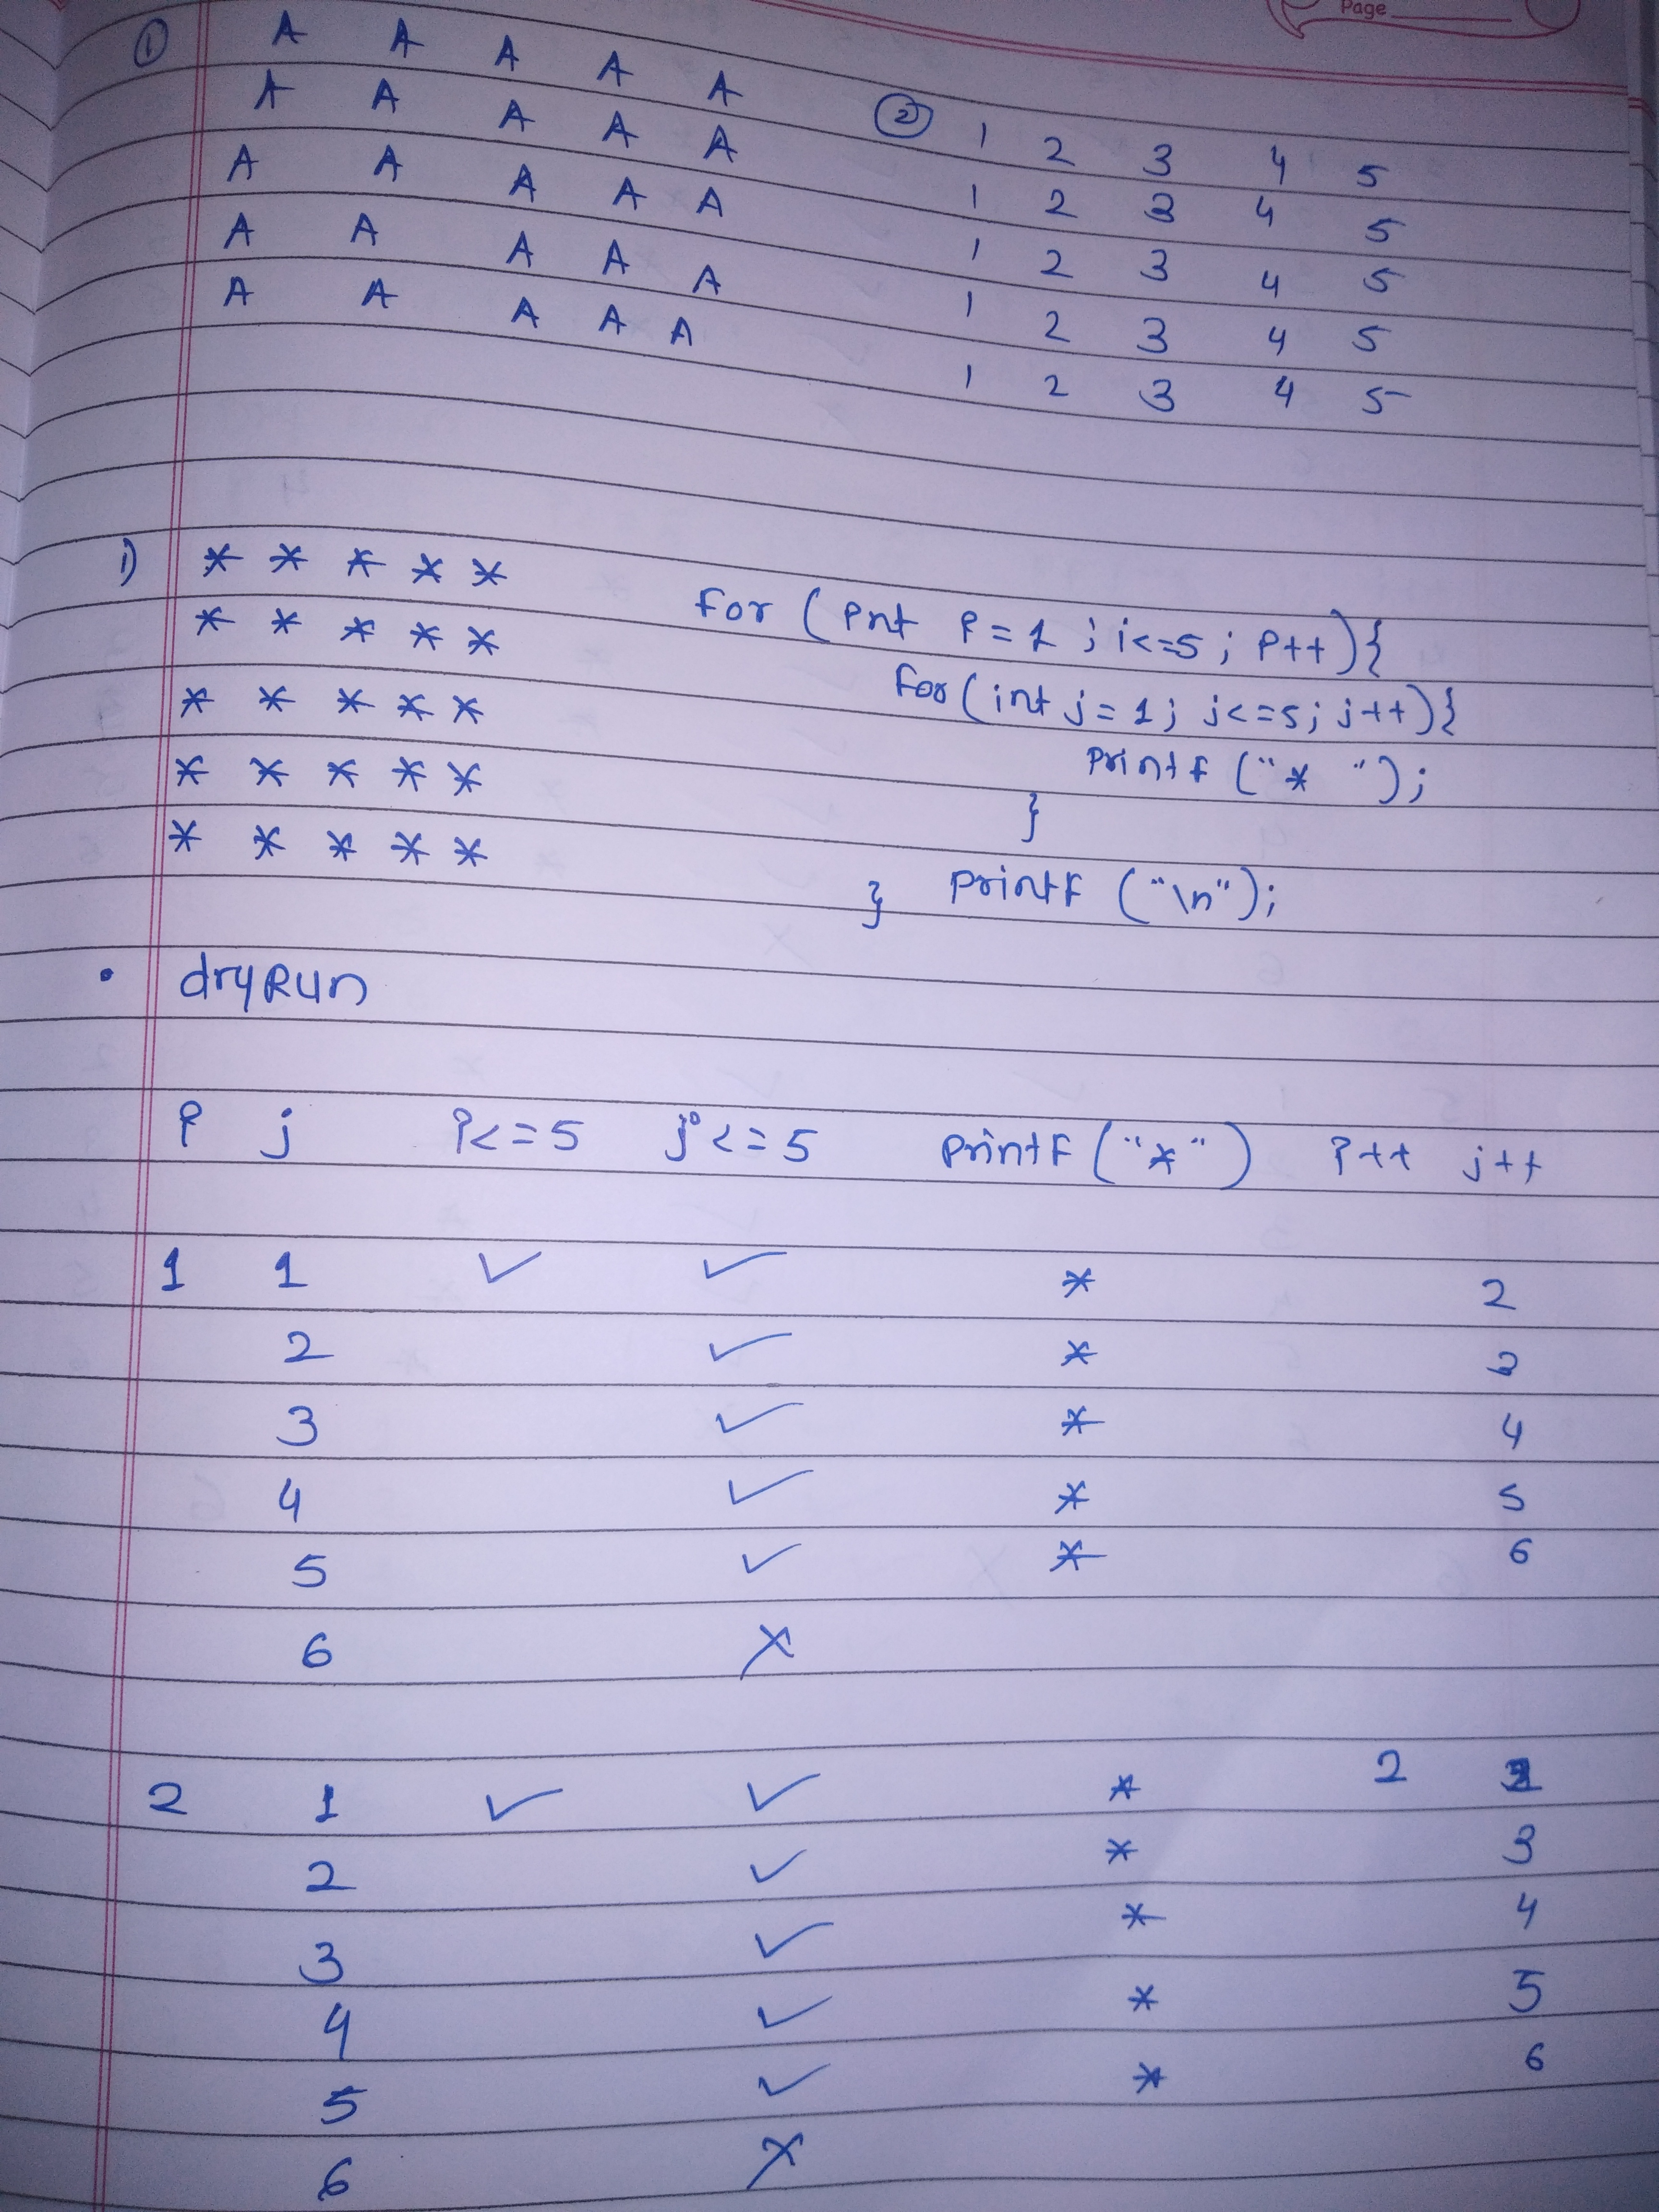 Page
① A A A A A
A A A A A
A A A A A
A A A A A
A A A A A
② 1 2 3 4 5
1 2 3 4 5
1 2 3 4 5
1 2 3 4 5
1 2 3 4 5
1) * * * * *
* * * * *
* * * * *
* * * * *
* * * * *
for (int i=1; i<=5; i++){
for(int j=1; j<=5; j++){
printf ("* ");
}
} printf ("\n");
• dryRun
i j i<=5 j<=5 printf("*") i++ j++
1 1 ✓ ✓ * 2
2 ✓ * 3
3 ✓ * 4
4 ✓ * 5
5 ✓ * 6
6 ✗
2 1 ✓ ✓ * 2
2 ✓ * 3
3 ✓ * 4
4 ✓ * 5
5 ✓ * 6
6 ✗